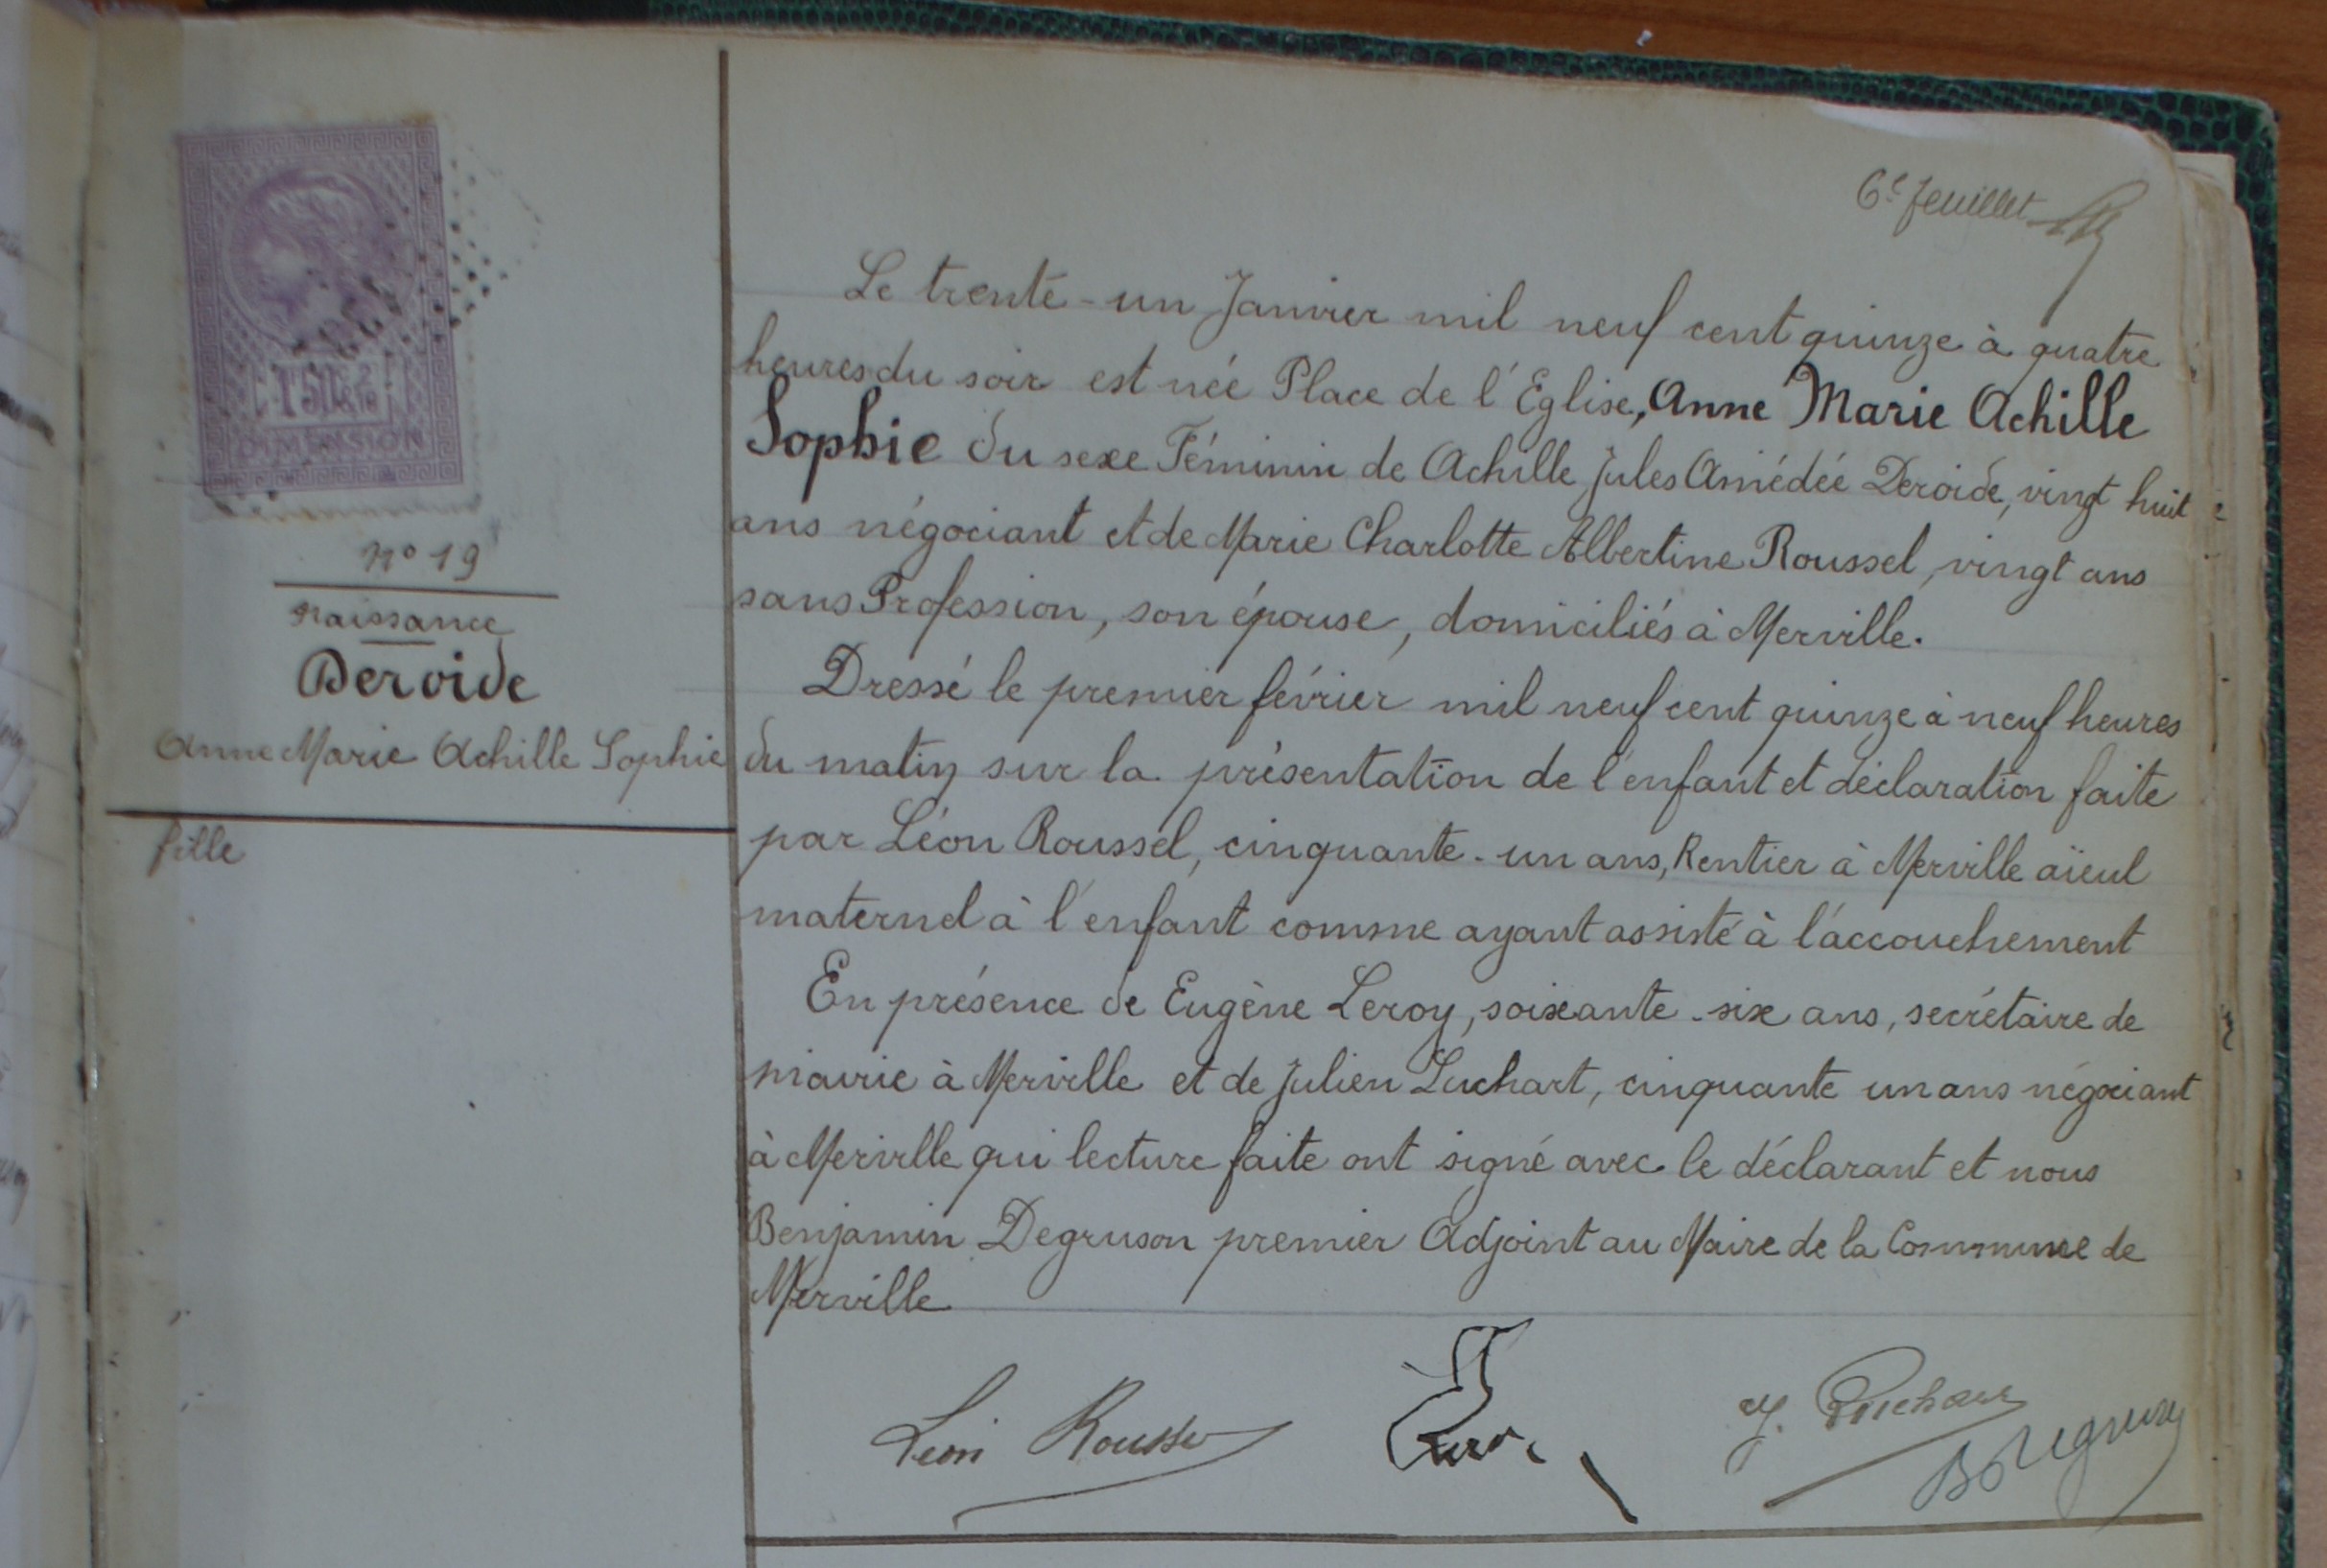 6e feuillet
1 50
DIMENSION
No 19
Naissance
Deroide
Anne Marie Achille Sophie
fille
Le trente-un Janvier mil neuf cent quinze à quatre
heures du soir est née Place de l'Eglise, Anne Marie Achille
Sophie du sexe Féminin de Achille Jules Amédée Deroide, vingt huit
ans négociant et de Marie Charlotte Albertine Roussel, vingt ans
sans Profession, son épouse, domiciliés à Merville.
Dressé le premier février mil neuf cent quinze à neuf heures
du matin sur la présentation de l'enfant et déclaration faite
par Léon Roussel, cinquante-un ans, Rentier à Merville aïeul
maternel à l'enfant comme ayant assisté à l'accouchement
En présence de Eugène Leroy, soixante-six ans, secrétaire de
mairie à Merville et de Julien Luchart, cinquante un ans négociant
à Merville qui lecture faite ont signé avec le déclarant et nous
Benjamin Degruson premier Adjoint au Maire de la Commune de
Merville
Léon Roussel
J. Luchart
B Degruson